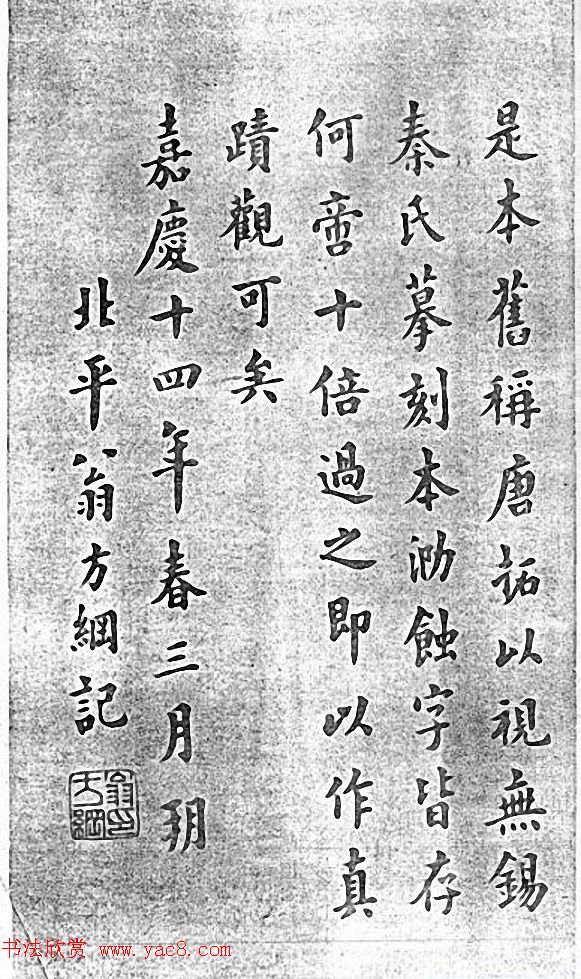 是本舊稱唐拓以視無錫
秦氏摹刻本泐蝕字皆存
何啻十倍過之即以作真
蹟觀可矣
嘉慶十四年春三月朔
北平翁方綱記
翁印
方綱
书法欣赏 www.yac8.com